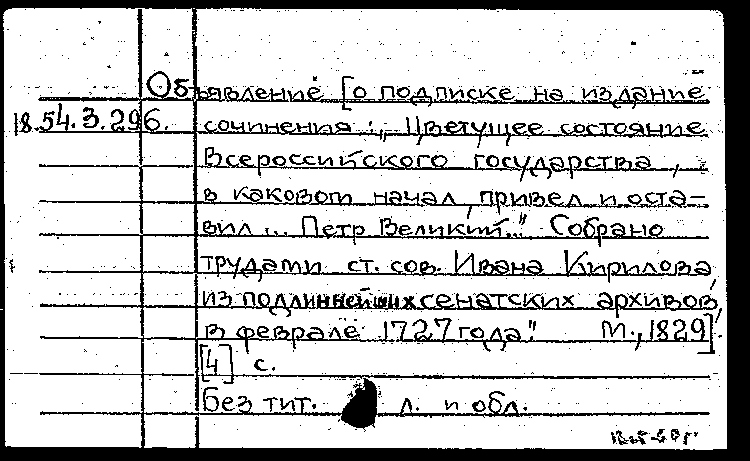 Объявление [о подписке на издание
18.54.3.296. сочинения : „Цветущее состояние
Всероссийского государства,
в каковом начал, привел и оста-
вил ... Петр Великий..." Собрано
трудами ст. сов. Ивана Кирилова
из подлиннейших сенатских архивов,
в феврале 1727 года." М., 1829].
[4] с.
Без тит. л. и обл.